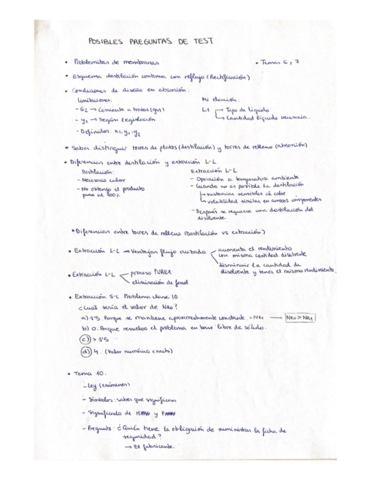 POSIBLES PREGUNTAS DE TEST
• Problemitas de membranas
• Temas 6, 7
• Esquema destilación continua con reflujo (Rectificación)
• Condiciones de diseño en absorción:
Limitaciones:
Mi elección:
- G2 → Corriente a tratar (gas)
L1 → Tipo de líquido
↳ Cantidad líquido necesaria.
- y1 → Según legislación
- Definidas: x2, y1, y2
• Saber distinguir torres de platos (destilación) y torres de relleno (absorción)
• Diferencias entre destilación y extracción L-L
Destilación:
Extracción L-L
- Necesitas calor
- Operación a temperatura ambiente
- No obtengo el producto puro al 100%
- Cuando no es posible la destilación
↳ sustancias sensibles al calor
↳ volatilidad similar en ambos componentes
- Después se requiere una destilación del disolvente.
• Diferencias entre torres de relleno (destilación vs extracción)
• Extracción L-L → Ventajas flujo cruzado
aumentar el rendimiento con misma cantidad disolvente
disminuir la cantidad de disolvente y tener el mismo rendimiento.
• Extracción L-L
proceso PUREX
eliminación de fenol
• Extracción S-L Problema clase 10
¿Cuál sería el valor de
a) 35. Porque se mantiene aproximadamente constante
b) 0. Porque resuelves el problema en base libre de sólido.
c) > 35
d) 4. (Valor numérico exacto)
• Tema 10.
- Ley (exámenes)
- Símbolos: saber que significan
- Significado de
- Pregunta: ¿Quién tiene la obligación de suministrar la ficha de seguridad?
→ El fabricante.